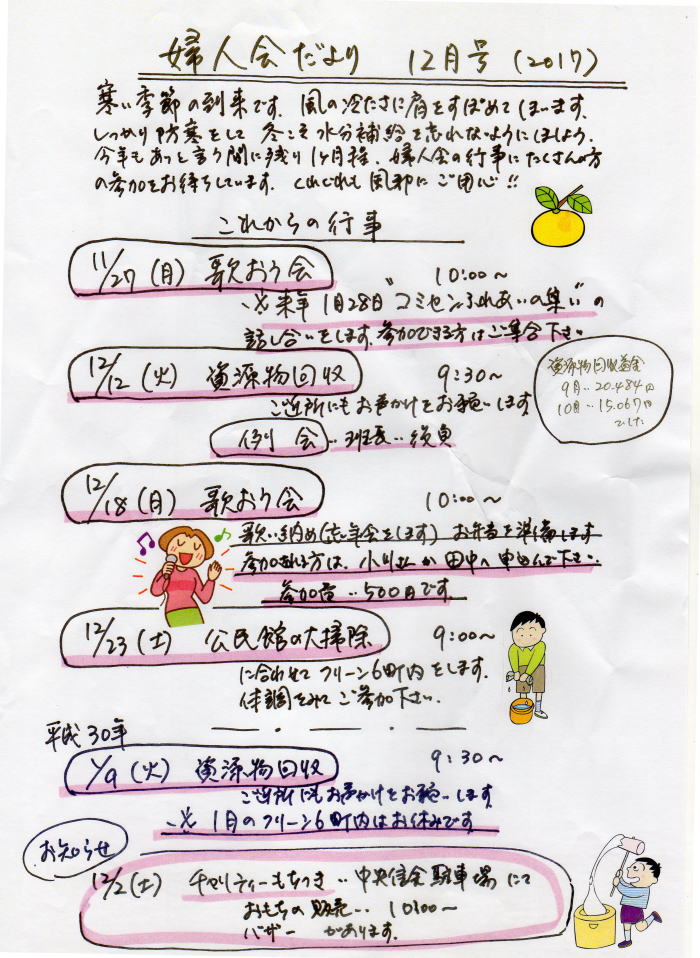 婦人会だより 12月号(2017)
寒い季節の到来です。風の冷たさに肩をすぼめてしまいます。
しっかり防寒をして 冬こそ水分補給を忘れないようにしましょう。
今年もあっと言う間に残り1ヶ月程、婦人会の行事にたくさんの方
の参加をお待ちしています。くれぐれも風邪にご用心!!
これからの行事
11/27(月) 歌おう会 10:00〜
※来年1月28日"コミセンふれあいの集い"の
話し合いをします。参加できる方はご集合下さい
12/12(火) 資源物回収 9:30〜
ご近所にもお声かけをお願いします
例会‥班長‥役員
資源物回収益金
9月‥20.484円
10月‥15.067円
でした
12/18(月) 歌おう会 10:00〜
歌い納め(忘年会をします) お弁当を準備します
参加される方は、小川 か 田中へ申込んで下さい。
参加費‥500円です。
12/23(土) 公民館の大掃除 9:00〜
に合わせて クリーン6町内をします。
体調をみて ご参加下さい。
平成30年
1/9(火) 資源物回収 9:30〜
ご近所にもお声かけをお願いします
※ 1月のクリーン6町内はお休みです
お知らせ
12/2(土) チャリティーもちつき‥中央信金駐車場にて
おもちの販売‥ 10:00〜
バザー があります。